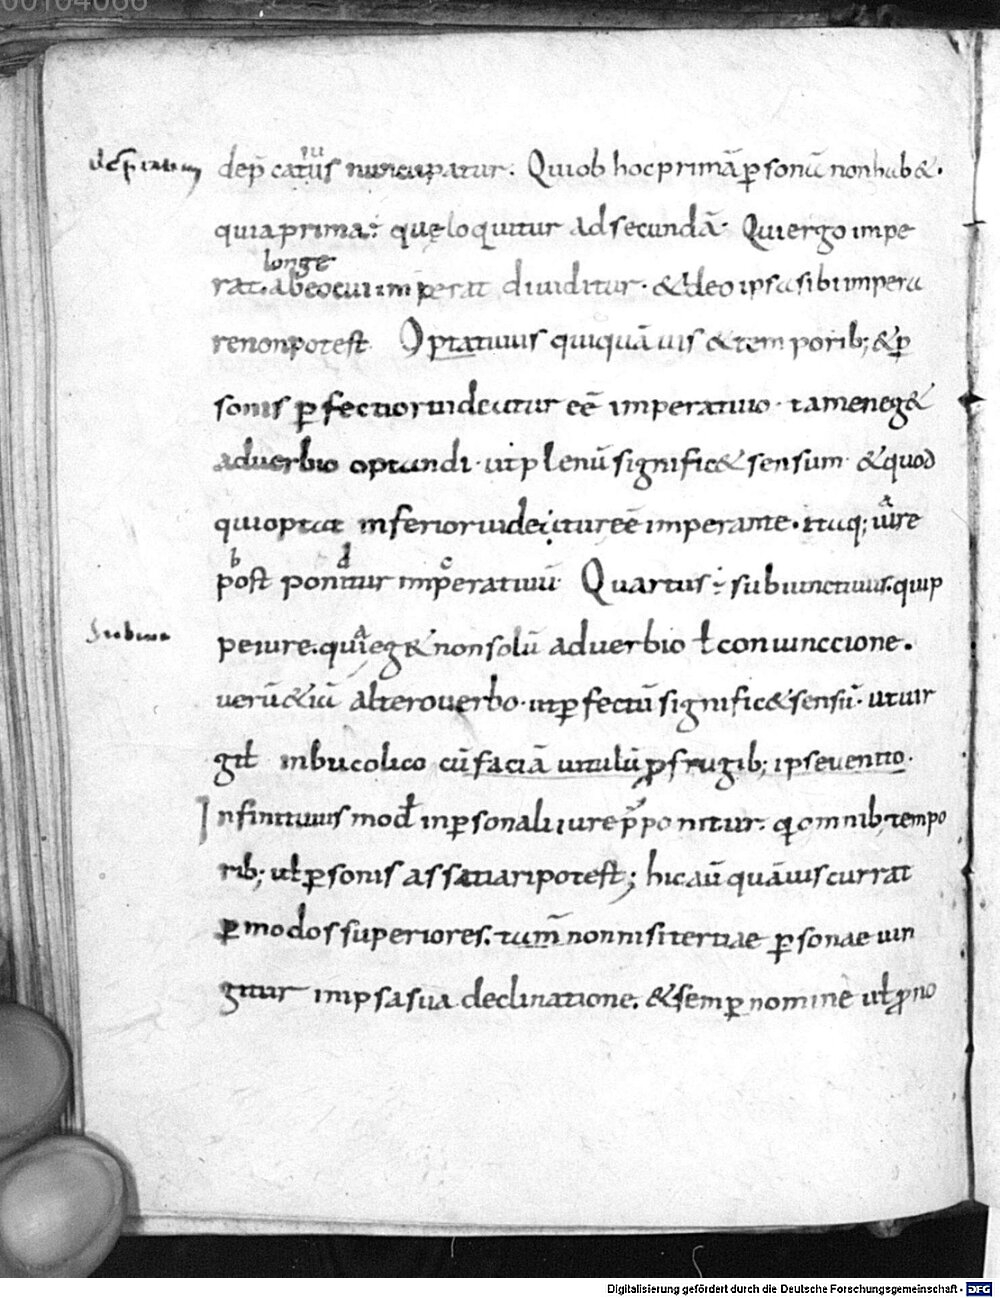 00104066
dep̄catus nuncupatur. Quiob hocprimā ꝑsonā nonhab&.
iu
quiaprima: quęloquitur adsecundā. Quiergo impe
longe
rat. abeocuiimperat diuiditur. &ideo ipsasibiimpera
renonpotest Optatiuus quiquāuis &temporib; &ꝑ
sonis ꝑfectioruideatur eē imperatiuo. tameneg&
aduerbio optandi. utplenū signific& sensum. &quod
quioptat inferioruideatureē imperante. itaq; iure
a
b d c
post ponitur imperatiuū Quartus: subiunctiuus. quip
Subiun
peiure. quia eg& nonsolū aduerbio ł coniunccione.
uerū&iā alterouerbo. utꝑfectū signific& sensū. utuir
gił inbucolico cū faciā uitulū ꝑfrugib; ipseuenito.
Infinitiuus mod inꝑsonali iure p̄ponitur. q omnib; tempo
rib; uł ꝑsonis assatiaripotest; hic aū quāuis currat
ꝑmodos superiores. tam̄ nonnisitertiae ꝑsonae uin
gitur inipsasua declinatione. &semꝑ nomine uł ꝓno
Digitalisierung gefördert durch die Deutsche Forschungsgemeinschaft - DFG